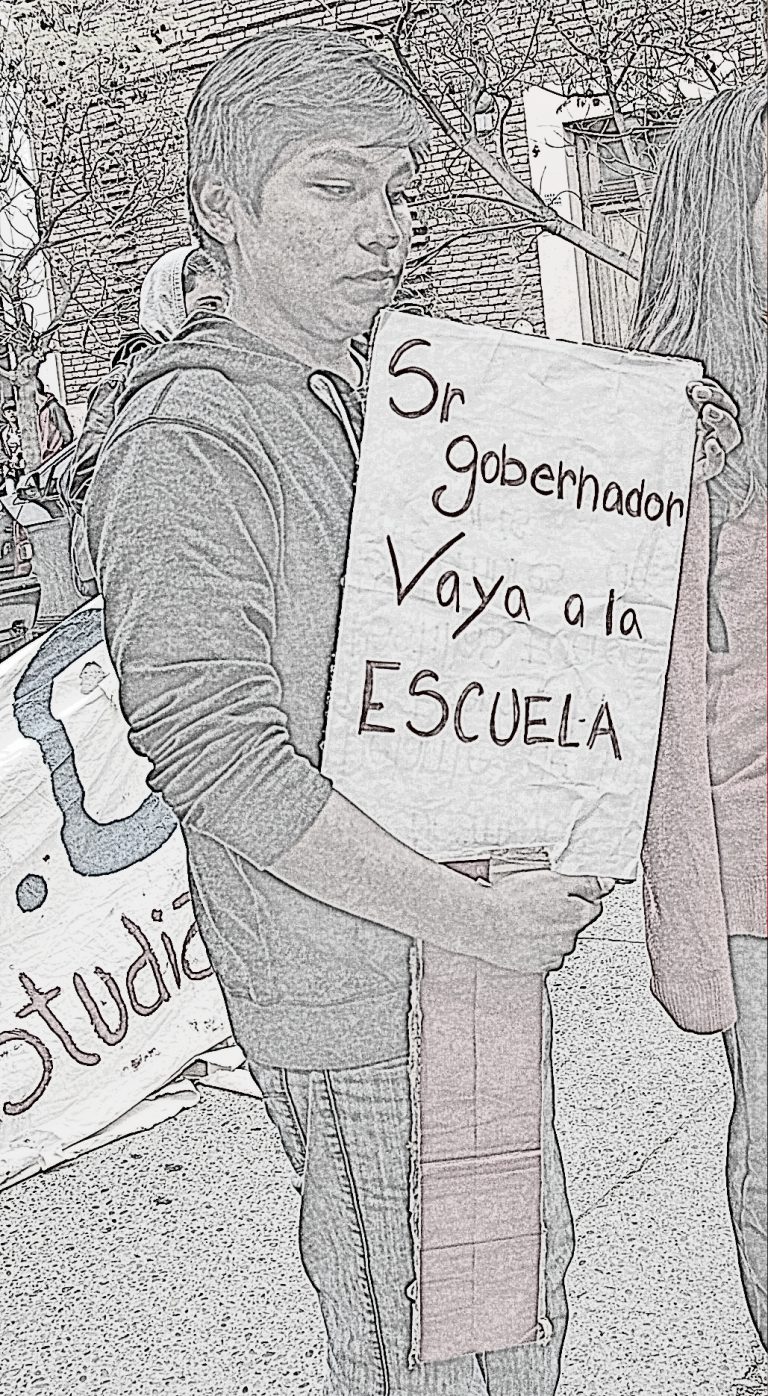 Sr
gobernador
Vaya a la
ESCUELA
studia